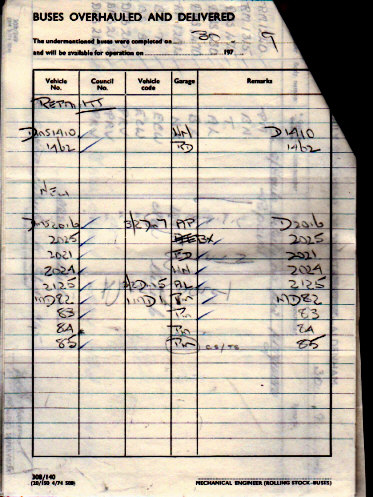 BUSES OVERHAULED AND DELIVERED
The undermentioned buses were completed on 30
and will be available for operation on 197 9
Vehicle No. Council No. Vehicle code Garage Remarks
REPAINT
DMS1410 NN D1410
1462 BD 1462
NEW
DMS2016 3/2DM7 AP D2016
2025 BX 2025
2021 BD 2021
2024 NN 2024
2125 AL 2125
MD82 1MD1 PM MD82
83 PM 83
84 PM 84
85 PM 85
308/140
MECHANICAL ENGINEER (ROLLING STOCK-BUSES)